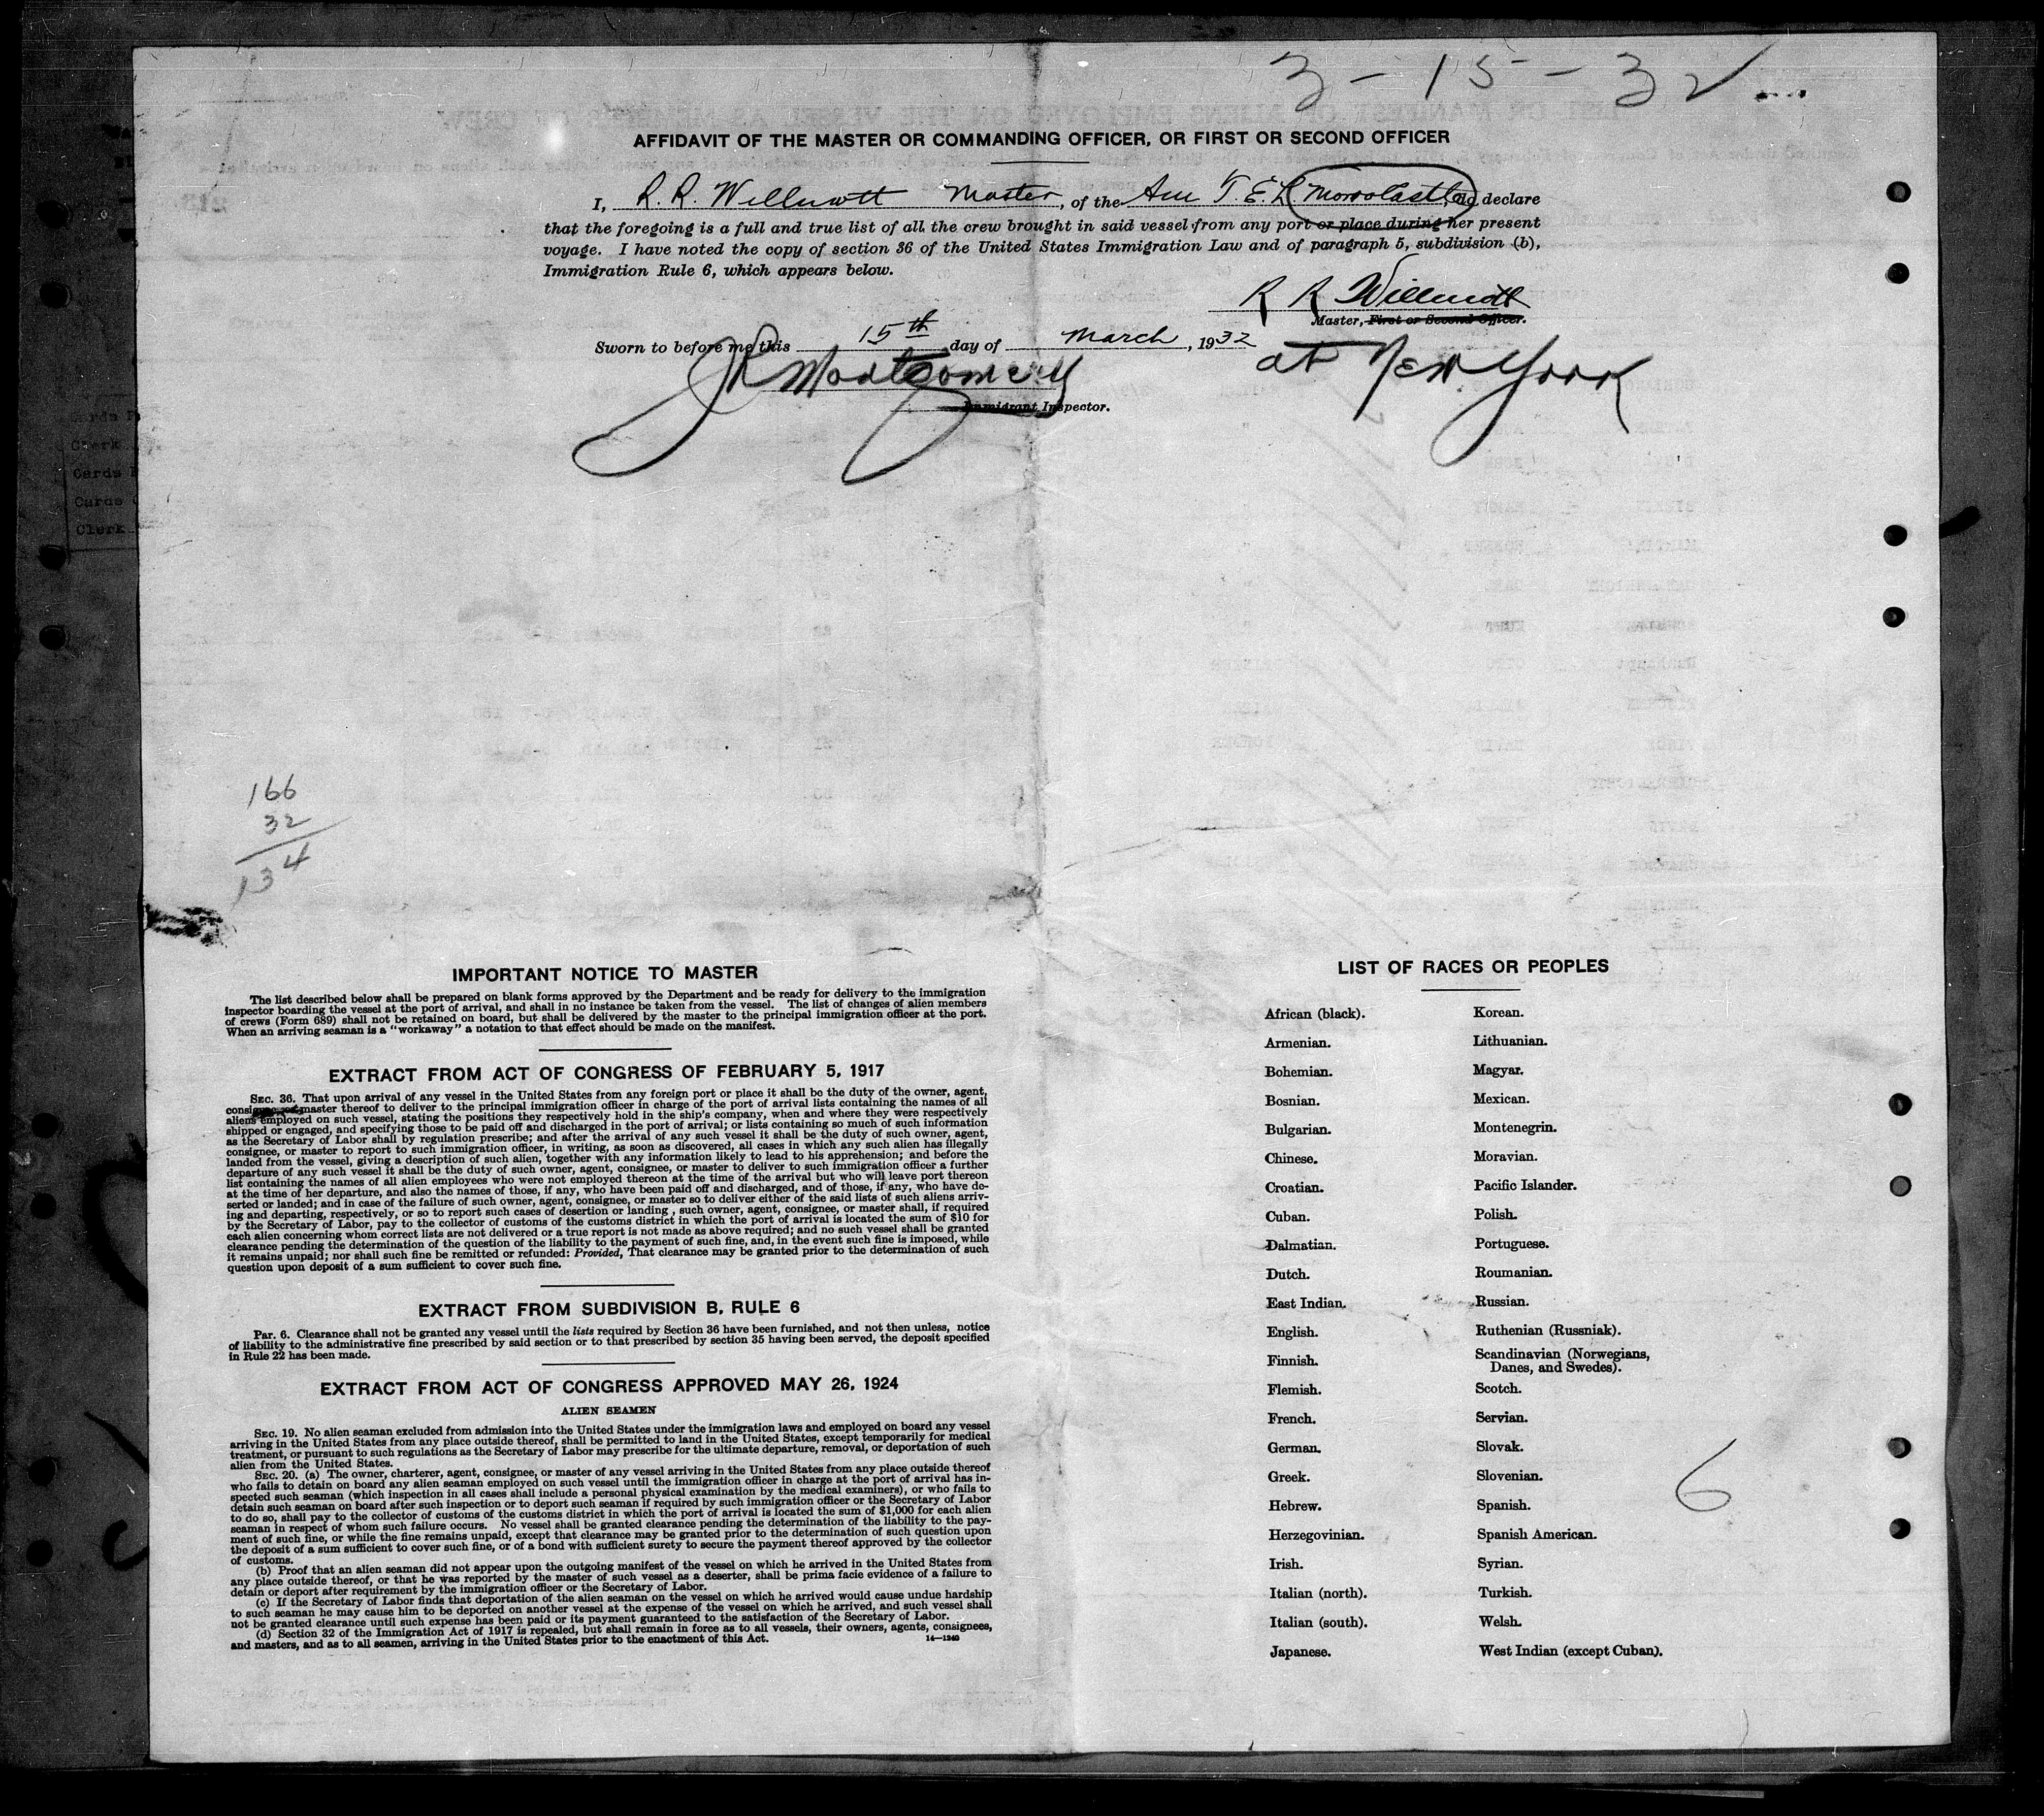 3-15-32
AFFIDAVIT OF THE MASTER OR COMMANDING OFFICER, OR FIRST OR SECOND OFFICER
I, R. R. Willmott Master, of the Am T. E. L. Morro Castle, do declare
that the foregoing is a full and true list of all the crew brought in said vessel from any port or place during her present
voyage. I have noted the copy of section 36 of the United States Immigration Law and of paragraph 5, subdivision (b),
Immigration Rule 6, which appears below.
R R Willmott
Master, First or Second Officer.
Sworn to before me this 15th day of March, 1932
at New York
Montgomery
Immigrant Inspector.
Cards
Clerk
Cards
Cards
Clerk
166
32
134
IMPORTANT NOTICE TO MASTER
The list described below shall be prepared on blank forms approved by the Department and be ready for delivery to the immigration
inspector boarding the vessel at the port of arrival, and shall in no instance be taken from the vessel. The list of changes of alien members
of crews (Form 689) shall not be retained on board, but shall be delivered by the master to the principal immigration officer at the port.
When an arriving seaman is a "workaway" a notation to that effect should be made on the manifest.
EXTRACT FROM ACT OF CONGRESS OF FEBRUARY 5, 1917
SEC. 36. That upon arrival of any vessel in the United States from any foreign port or place it shall be the duty of the owner, agent,
consignee, or master thereof to deliver to the principal immigration officer in charge of the port of arrival lists containing the names of all
aliens employed on such vessel, stating the positions they respectively hold in the ship's company, when and where they were respectively
shipped or engaged, and specifying those to be paid off and discharged in the port of arrival; or lists containing so much of such information
as the Secretary of Labor shall by regulation prescribe; and after the arrival of any such vessel it shall be the duty of such owner, agent,
consignee, or master to report to such immigration officer, in writing, as soon as discovered, all cases in which any such alien has illegally
landed from the vessel, giving a description of such alien, together with any information likely to lead to his apprehension; and before the
departure of any such vessel it shall be the duty of such owner, agent, consignee, or master to deliver to such immigration officer a further
list containing the names of all alien employees who were not employed thereon at the time of the arrival but who will leave port thereon
at the time of her departure, and also the names of those, if any, who have been paid off and discharged, and of those, if any, who have de-
serted or landed; and in case of the failure of such owner, agent, consignee, or master so to deliver either of the said lists of such aliens arriv-
ing and departing, respectively, or so to report such cases of desertion or landing , such owner, agent, consignee, or master shall, if required
by the Secretary of Labor, pay to the collector of customs of the customs district in which the port of arrival is located the sum of $10 for
each alien concerning whom correct lists are not delivered or a true report is not made as above required; and no such vessel shall be granted
clearance pending the determination of the question of the liability to the payment of such fine, and, in the event such fine is imposed, while
it remains unpaid; nor shall such fine be remitted or refunded: Provided, That clearance may be granted prior to the determination of such
question upon deposit of a sum sufficient to cover such fine.
EXTRACT FROM SUBDIVISION B, RULE 6
Par. 6. Clearance shall not be granted any vessel until the lists required by Section 36 have been furnished, and not then unless, notice
of liability to the administrative fine prescribed by said section or to that prescribed by section 35 having been served, the deposit specified
in Rule 22 has been made.
EXTRACT FROM ACT OF CONGRESS APPROVED MAY 26, 1924
ALIEN SEAMEN
SEC. 19. No alien seaman excluded from admission into the United States under the immigration laws and employed on board any vessel
arriving in the United States from any place outside thereof, shall be permitted to land in the United States, except temporarily for medical
treatment, or pursuant to such regulations as the Secretary of Labor may prescribe for the ultimate departure, removal, or deportation of such
alien from the United States.
SEC. 20. (a) The owner, charterer, agent, consignee, or master of any vessel arriving in the United States from any place outside thereof
who fails to detain on board any alien seaman employed on such vessel until the immigration officer in charge at the port of arrival has in-
spected such seaman (which inspection in all cases shall include a personal physical examination by the medical examiners), or who fails to
detain such seaman on board after such inspection or to deport such seaman if required by such immigration officer or the Secretary of Labor
to do so, shall pay to the collector of customs of the customs district in which the port of arrival is located the sum of $1,000 for each alien
seaman in respect of whom such failure occurs. No vessel shall be granted clearance pending the determination of the liability to the pay-
ment of such fine, or while the fine remains unpaid, except that clearance may be granted prior to the determination of such question upon
the deposit of a sum sufficient to cover such fine, or of a bond with sufficient surety to secure the payment thereof approved by the collector
of customs.
(b) Proof that an alien seaman did not appear upon the outgoing manifest of the vessel on which he arrived in the United States from
any place outside thereof, or that he was reported by the master of such vessel as a deserter, shall be prima facie evidence of a failure to
detain or deport after requirement by the immigration officer or the Secretary of Labor.
(c) If the Secretary of Labor finds that deportation of the alien seaman on the vessel on which he arrived would cause undue hardship
to such seaman he may cause him to be deported on another vessel at the expense of the vessel on which he arrived, and such vessel shall
not be granted clearance until such expense has been paid or its payment guaranteed to the satisfaction of the Secretary of Labor.
(d) Section 32 of the Immigration Act of 1917 is repealed, but shall remain in force as to all vessels, their owners, agents, consignees,
and masters, and as to all seamen, arriving in the United States prior to the enactment of this Act.
14—1240
LIST OF RACES OR PEOPLES
African (black). Korean.
Armenian. Lithuanian.
Bohemian. Magyar.
Bosnian. Mexican.
Bulgarian. Montenegrin.
Chinese. Moravian.
Croatian. Pacific Islander.
Cuban. Polish.
Dalmatian. Portuguese.
Dutch. Roumanian.
East Indian. Russian.
English. Ruthenian (Russniak).
Finnish. Scandinavian (Norwegians,
Danes, and Swedes).
Flemish. Scotch.
French. Servian.
German. Slovak.
Greek. Slovenian.
Hebrew. Spanish.
Herzegovinian. Spanish American.
Irish. Syrian.
Italian (north). Turkish.
Italian (south). Welsh.
Japanese. West Indian (except Cuban).
6